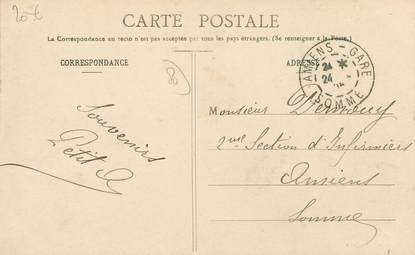 20 €
CARTE POSTALE
La Correspondance au recto n'est pas acceptée par tous les pays étrangers. (Se renseigner à la Poste.)
CORRESPONDANCE
ADRESSE
AMIENS - GARE
24
SOMME
Souvenirs
Petit
Monsieur
2me Section d'Infirmiers
Amiens
Somme